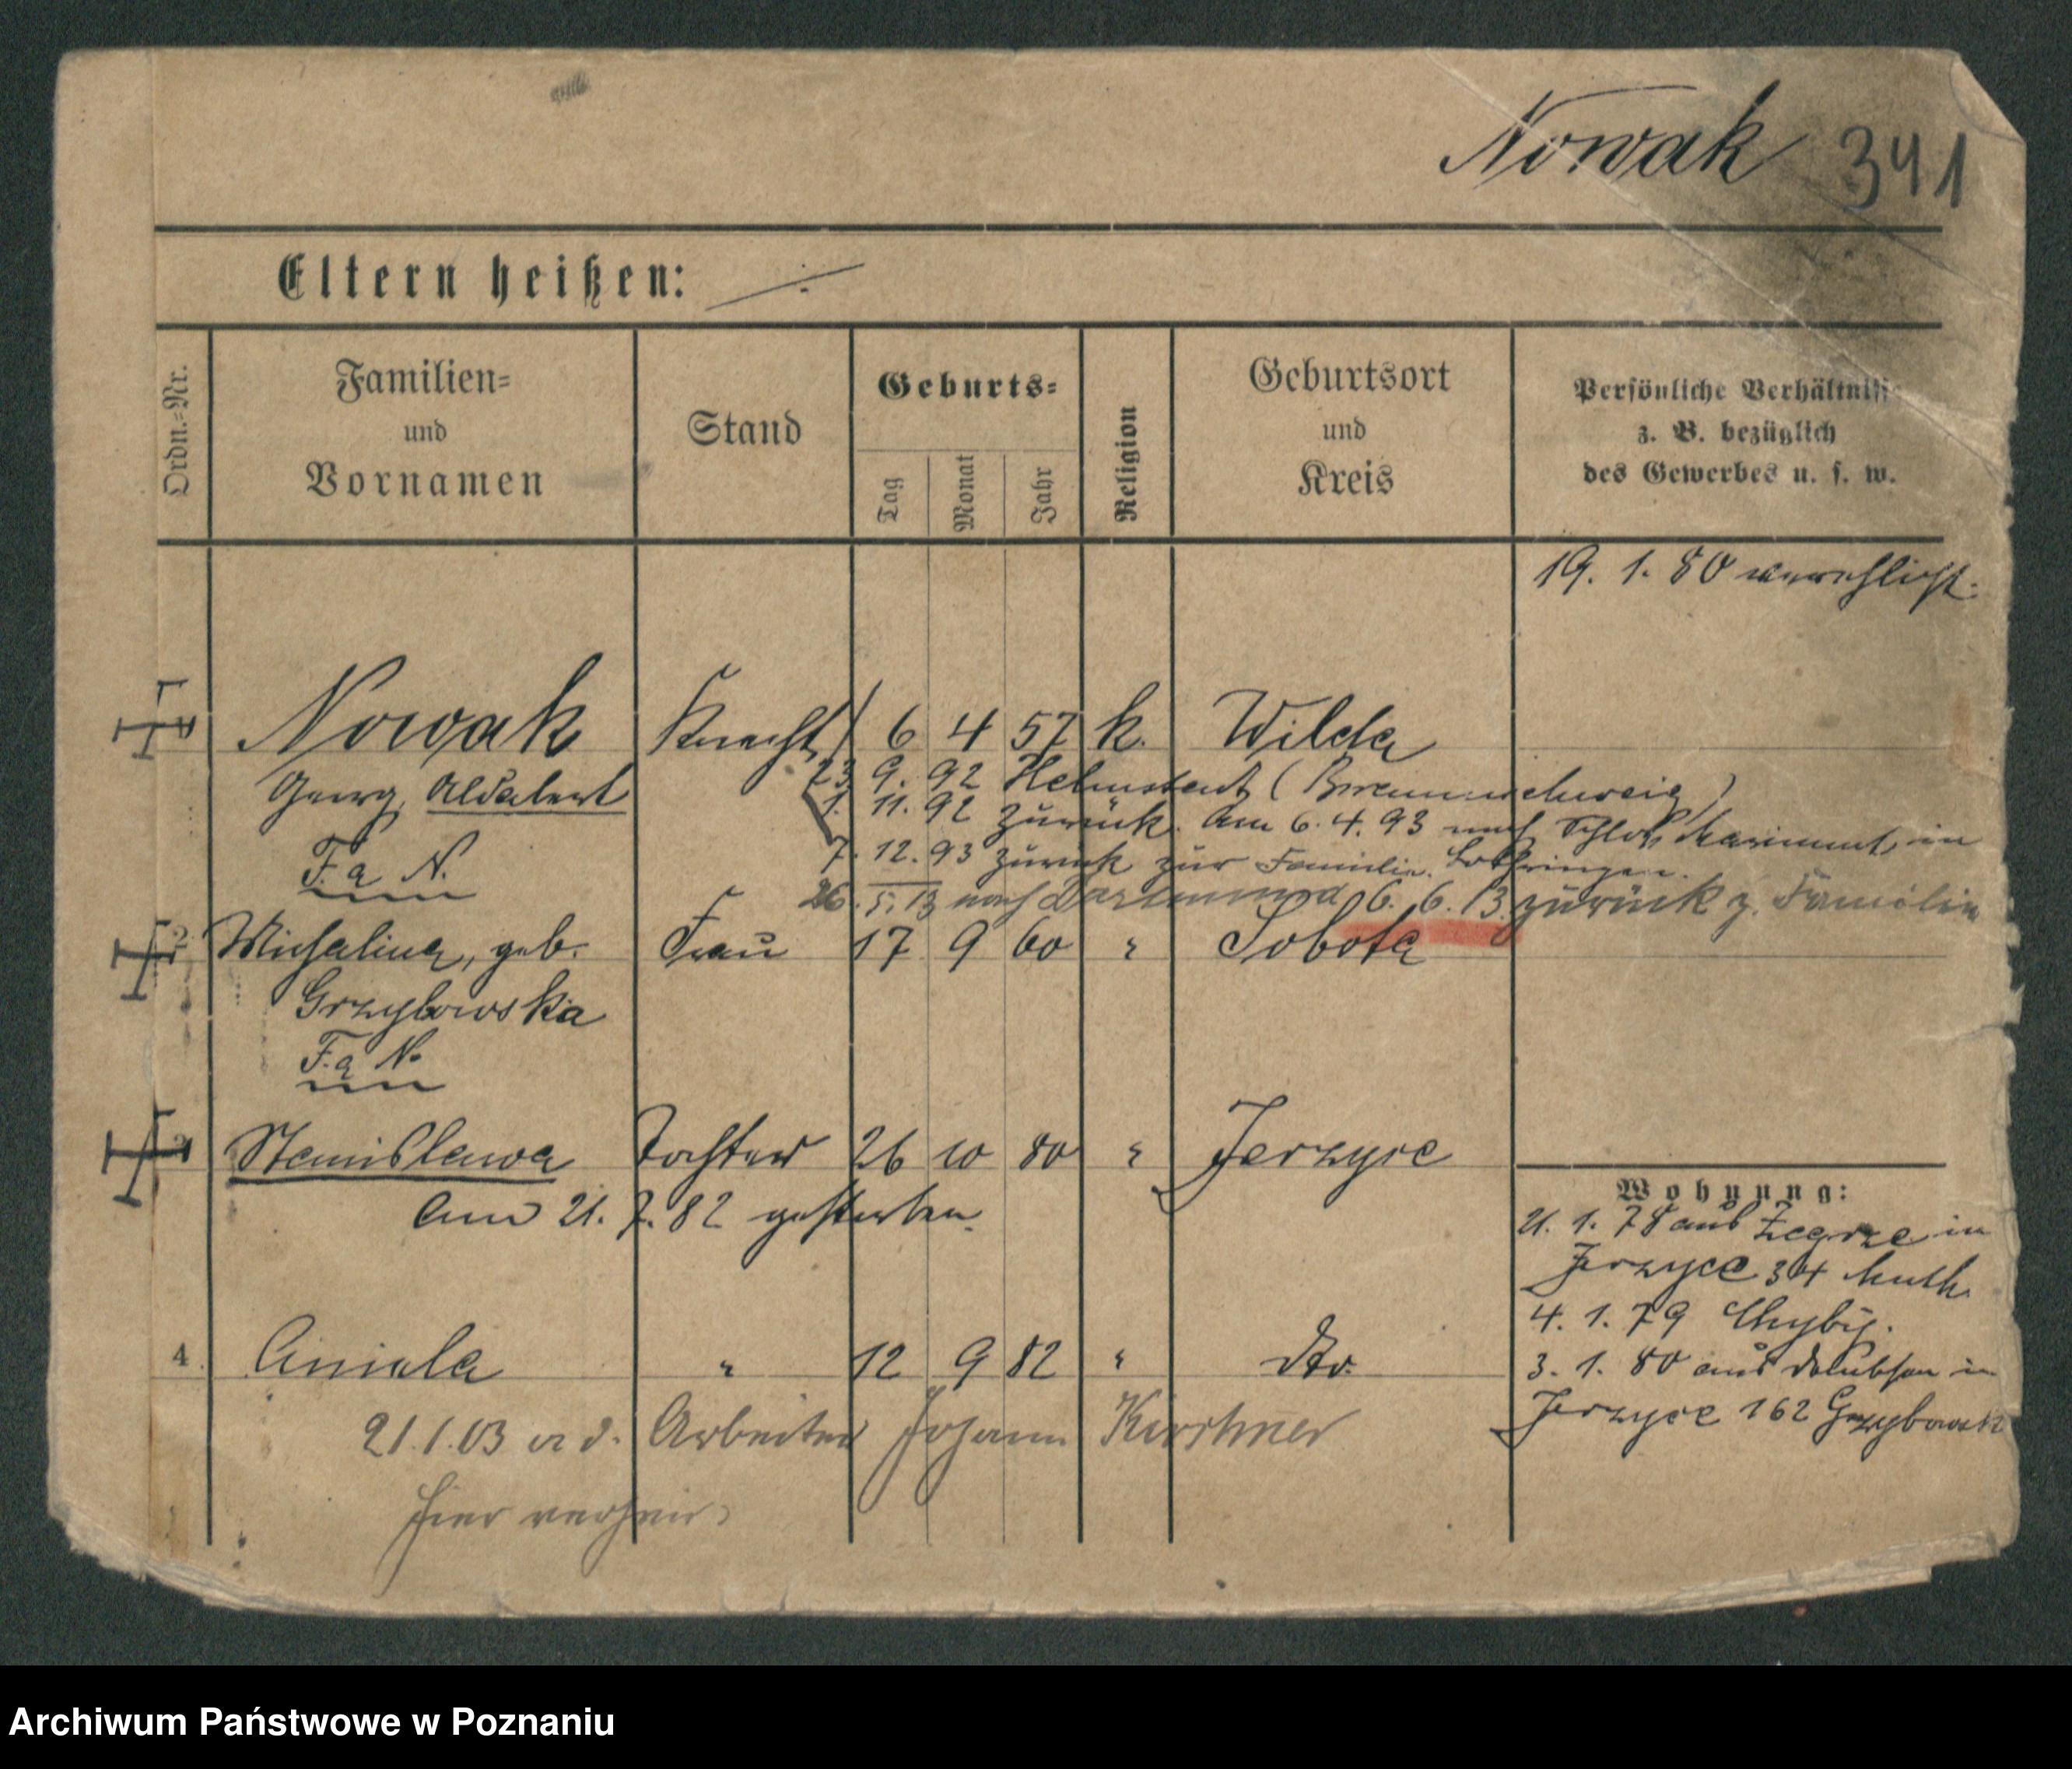 Nowak 341
Eltern heißen: ⁒
Ordn.-Nr.
Familien-
und
Vornamen
Stand
Geburts-
Tag
Monat
Jahr
Religion
Geburtsort
und
Kreis
Persönliche Verhältniss
z. B. bezüglich
des Gewerbes u. s. w.
19. 1. 80 verehlicht.
Nowak Knecht 6 4 57 k. Wilda
23 9. 92 Helmstedt (Braunschweig)
Georg, Adalbert
1. 11. 92 zurück. Am 6. 4. 93 nach Schloß in
F. a N.
7. 12. 93 zurück zur Familie. Lothringen.
26. 5. 13 nach Dortmund 6. 6. 13. zurück z. Familie
2 Michalina, geb. Frau 17 9 60 " Sobota
Grzybowska
F. a N.
Stanislawa Tochter 26 10 80 " Jerzyce
Am 21. 7. 82 gestorben.
Wohnung:
21. 1. 78 aus Zegrze in
Jerzyce 34 Muth.
4. 1. 79 Chyby.
4. Aniela " 12 9 82 " dto.
3. 1. 80 aus in
Jerzyce 162 Grzybowsk
21. 1. 03 a. d. Arbeiter Johann Kirschner
hier verheir.
Archiwum Państwowe w Poznaniu